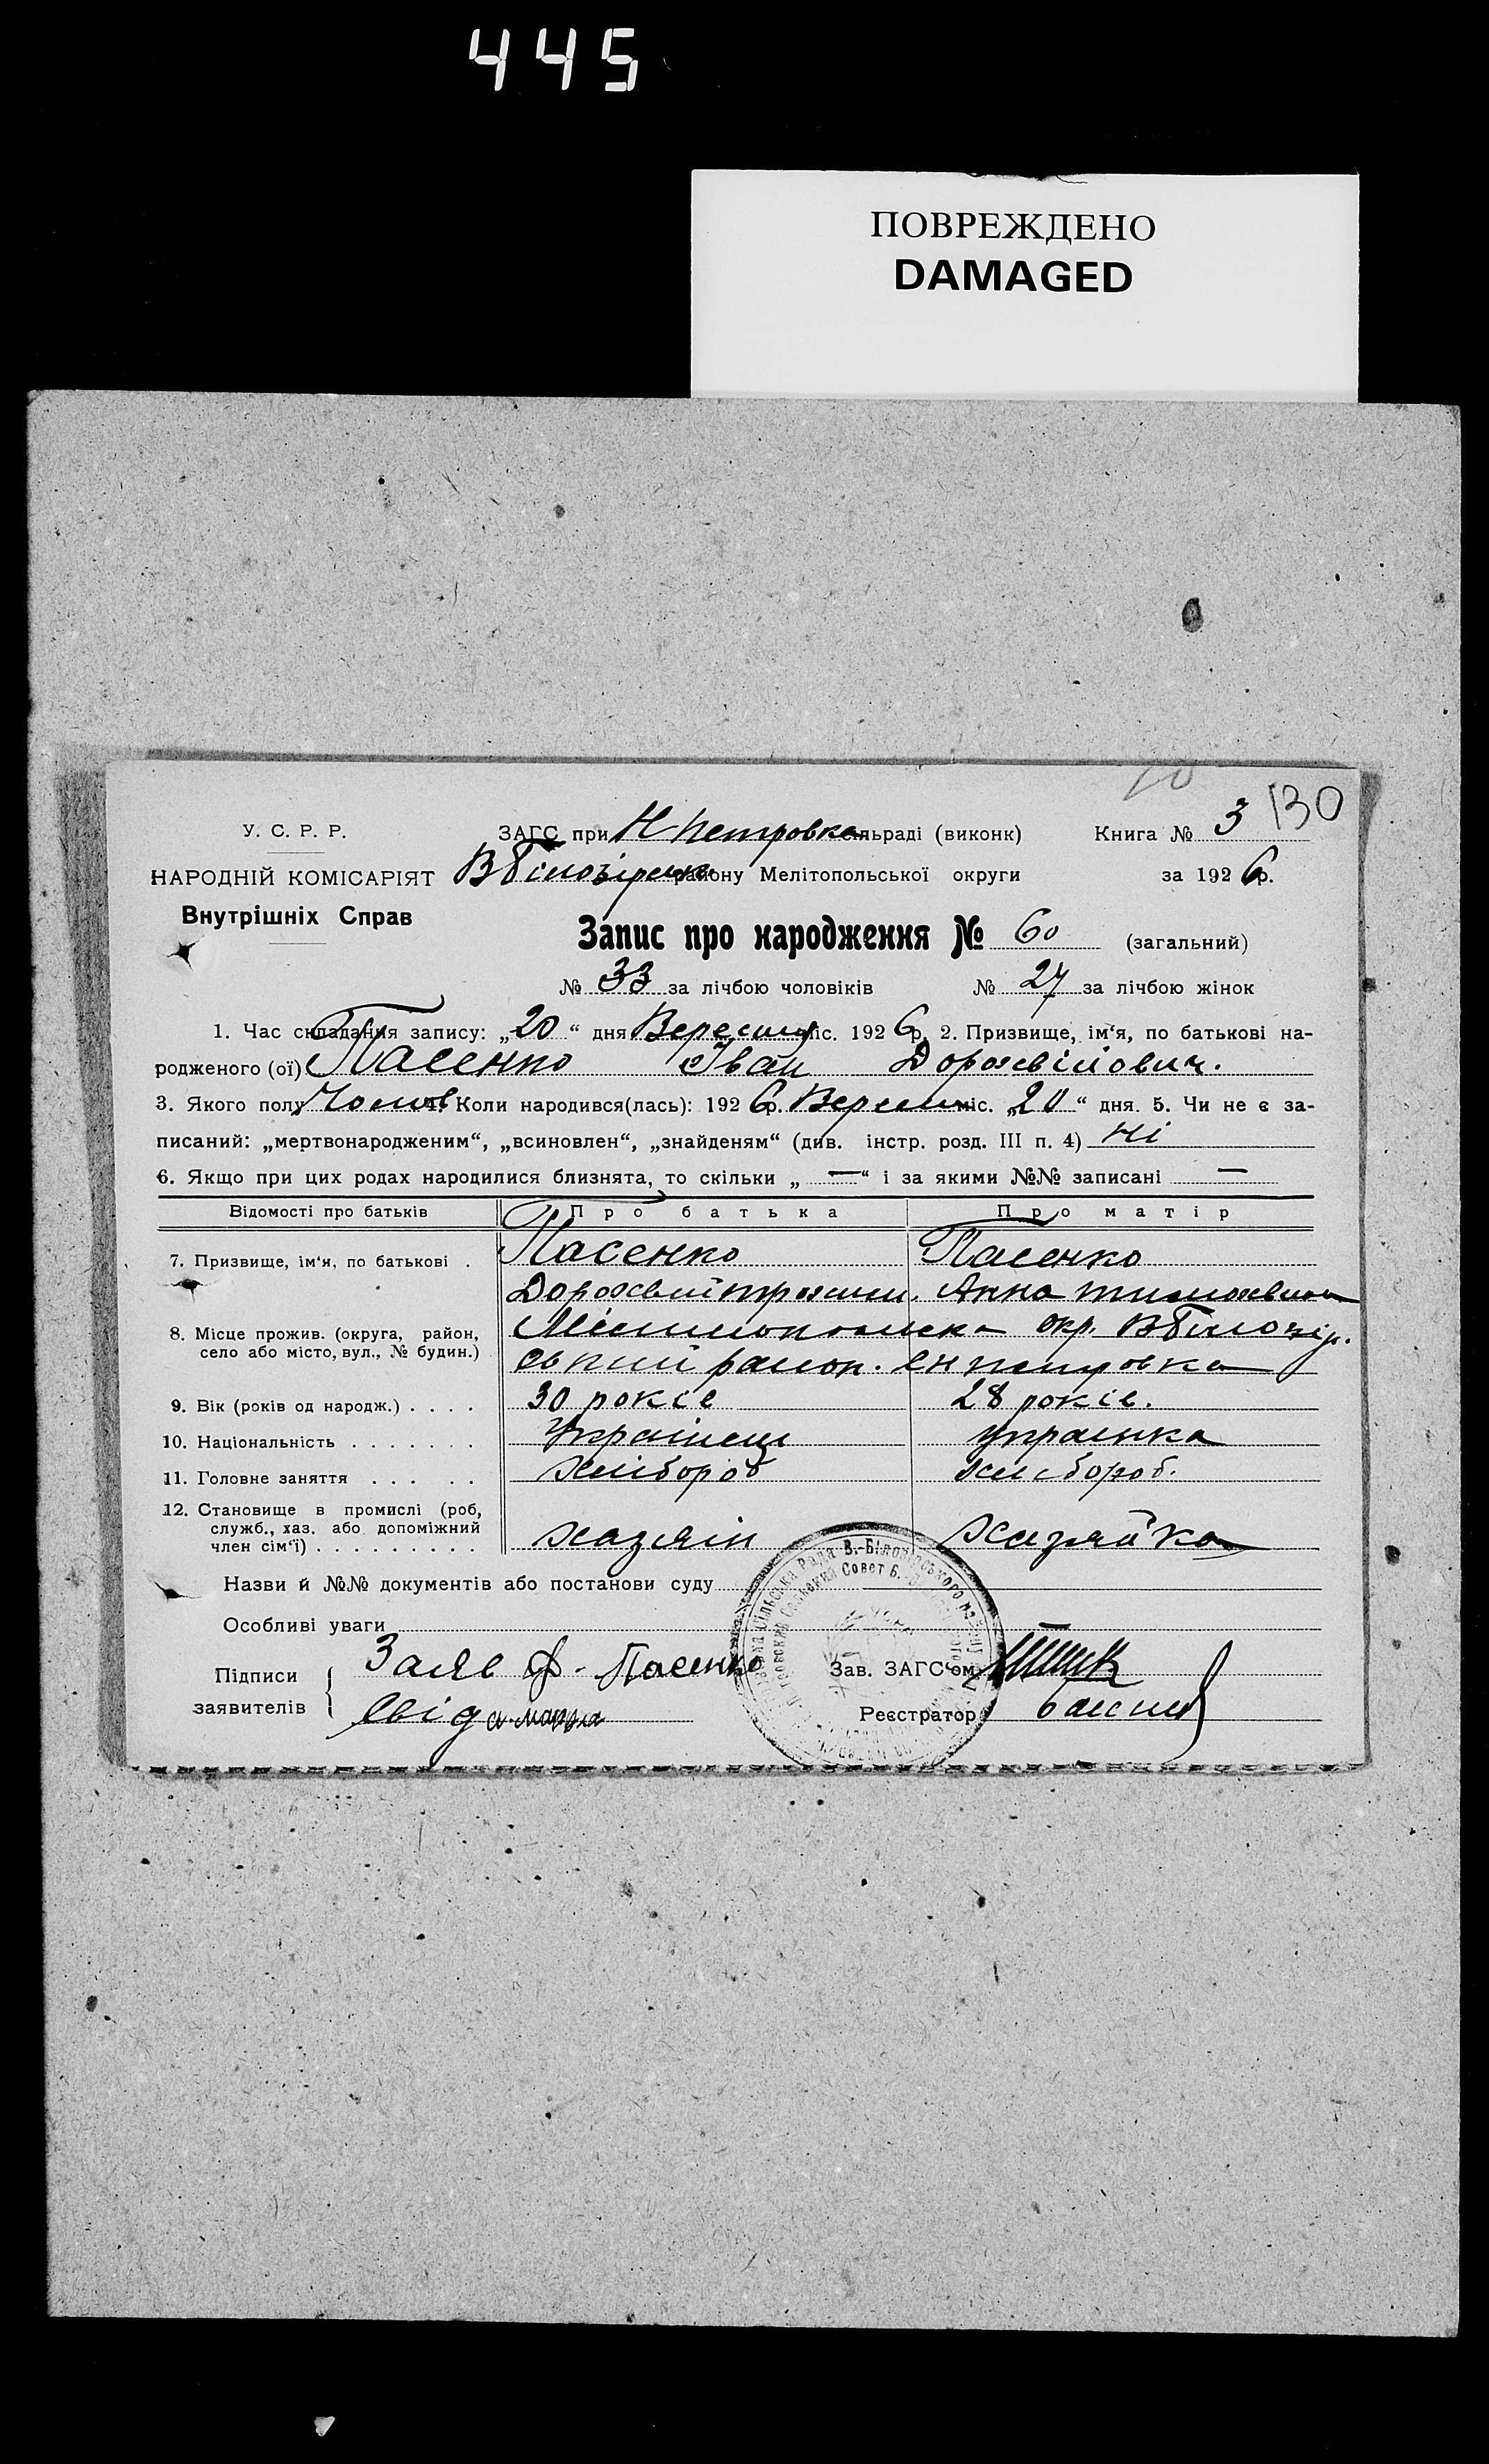 445
ПОВРЕЖДЕНО
DAMAGED
130
У. С. Р. Р.
ЗАГС при Н Петровка сільраді (виконк) Книга № 3
НАРОДНІЙ КОМІСАРІЯТ В Білозірськ району Мелітопольської округи за 1926 р.
Внутрішніх Справ
Запис про народження № 60 (загальний)
№ 33 за лічбою чоловіків № 27 за лічбою жінок
1. Час складання запису: „20“ дня Вересня міс. 1926 р. 2. Призвище, ім‘я, по батькові на-
родженого (ої) Пасенко Іван Дорохвійович.
3. Якого полу Чолов 4. Коли народився(лась): 1926 р. Вересня міс. „20“ дня. 5. Чи не є за-
писаний: „мертвонародженим“, „всиновлен“, „знайденям“ (див. інстр. розд. III п. 4) Ні
6. Якщо при цих родах народилися близнята, то скільки „—“ і за якими №№ записані —
Відомості про батьків Про батька Про матір
7. Призвище, ім‘я, по батькові . Пасенко Пасенко
Дорохвий Анна
8. Місце прожив. (округа, район, окр. В Білозір.
село або місто, вул., № будин.) ський район. с Н петровка
9. Вік (років од народж.) . . . . 30 років 28 років.
10. Національність . . . . . . . Українець українка
11. Головне заняття . . . . . хлібороб хлібороб.
12. Становище в промислі (роб,
служб., хаз. або допоміжний
член сім‘ї) . . . . . . . . . хазяін хазяйка
Назви й №№ документів або постанови суду
Особливі уваги
Підписи Заяв Пасенко Зав. ЗАГС‘ом
заявителів Свід Реєстратор